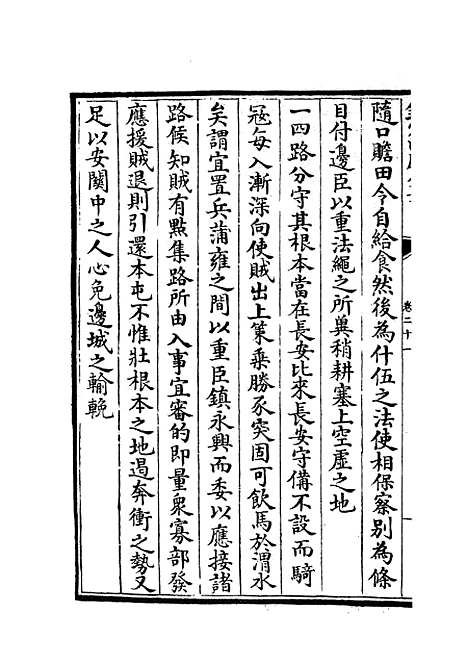 卷二十一
隨口贍田令自給食然後為什伍之法使相保察別為條
目付邊臣以重法繩之所冀稍耕塞上空虛之地
一四路分守其根本當在長安比來長安守備不設而騎
冦每入漸深向使賊出上策乘勝豕突固可飲馬於渭水
矣謂宜置兵蒲雍之間以重臣鎮永興而委以應接諸
路候知賊有點集路所由入事宜審的即量衆寡部發
應援賊退則引還本屯不惟壯根本之地遏奔衝之勢又
足以安關中之人心免邊城之輸輓